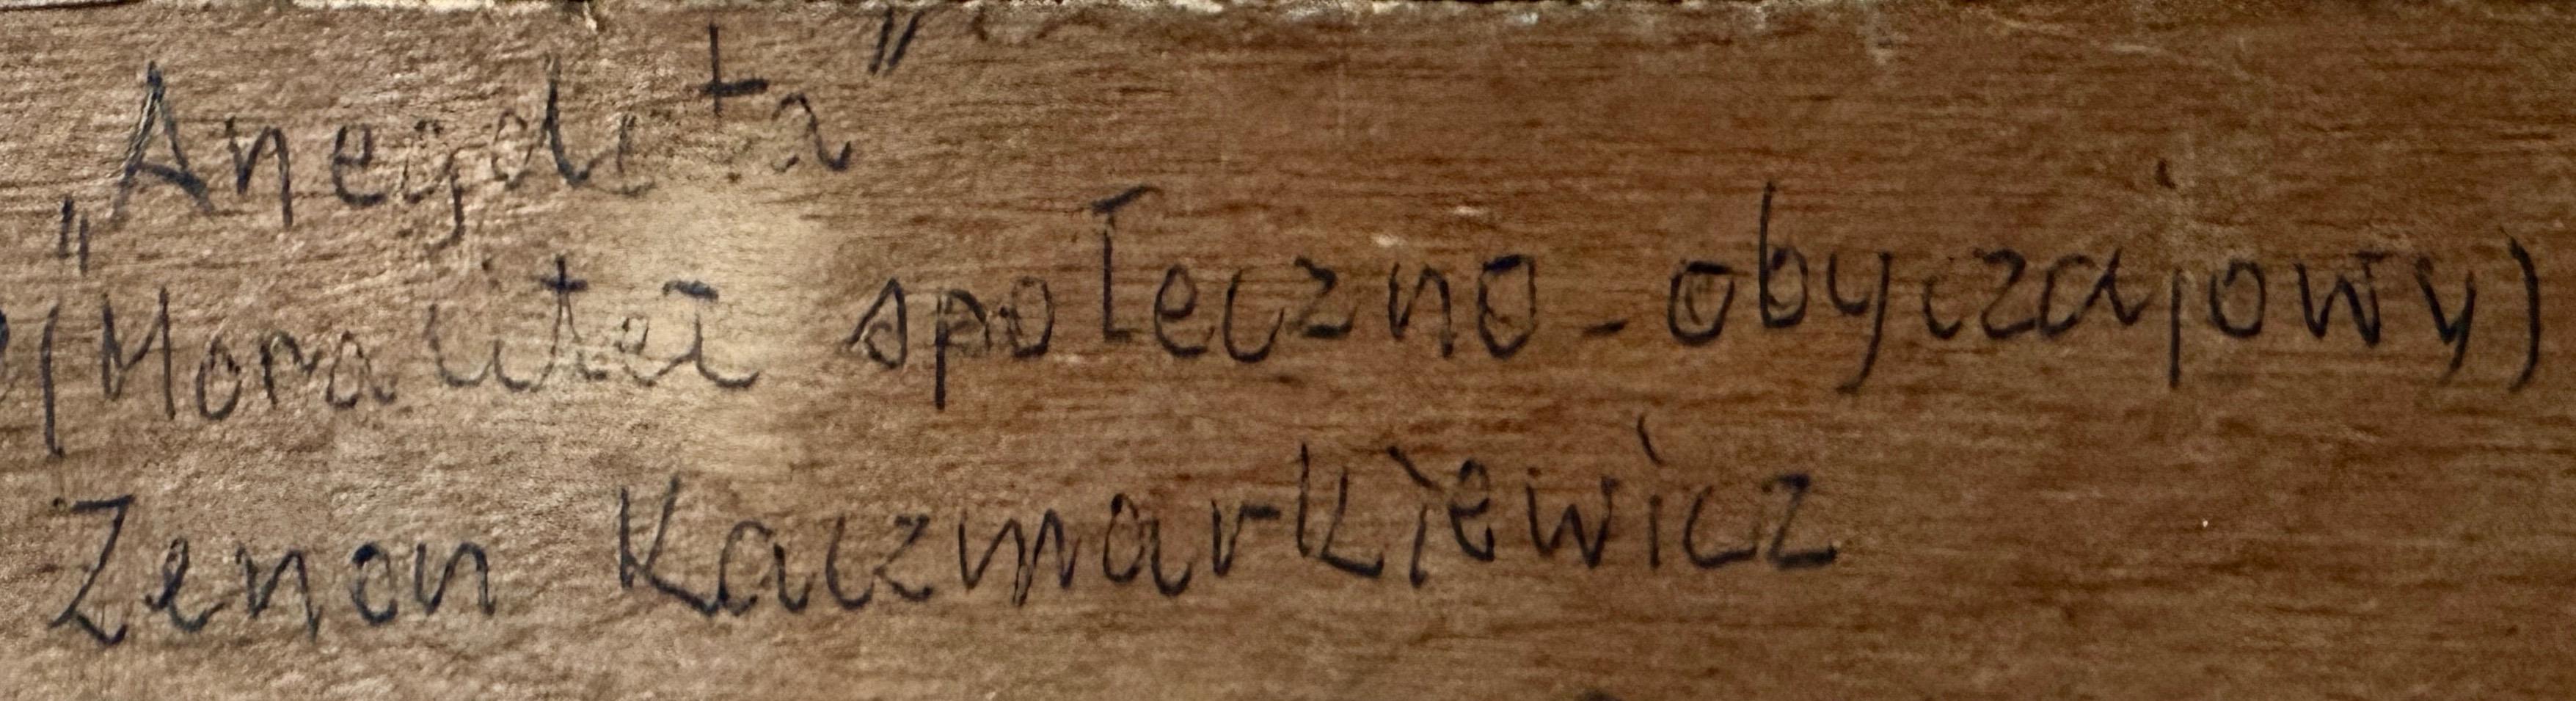 „Anegdota”
(Moralitet społeczno-obyczajowy)
Zenon Kaczmarkiewicz